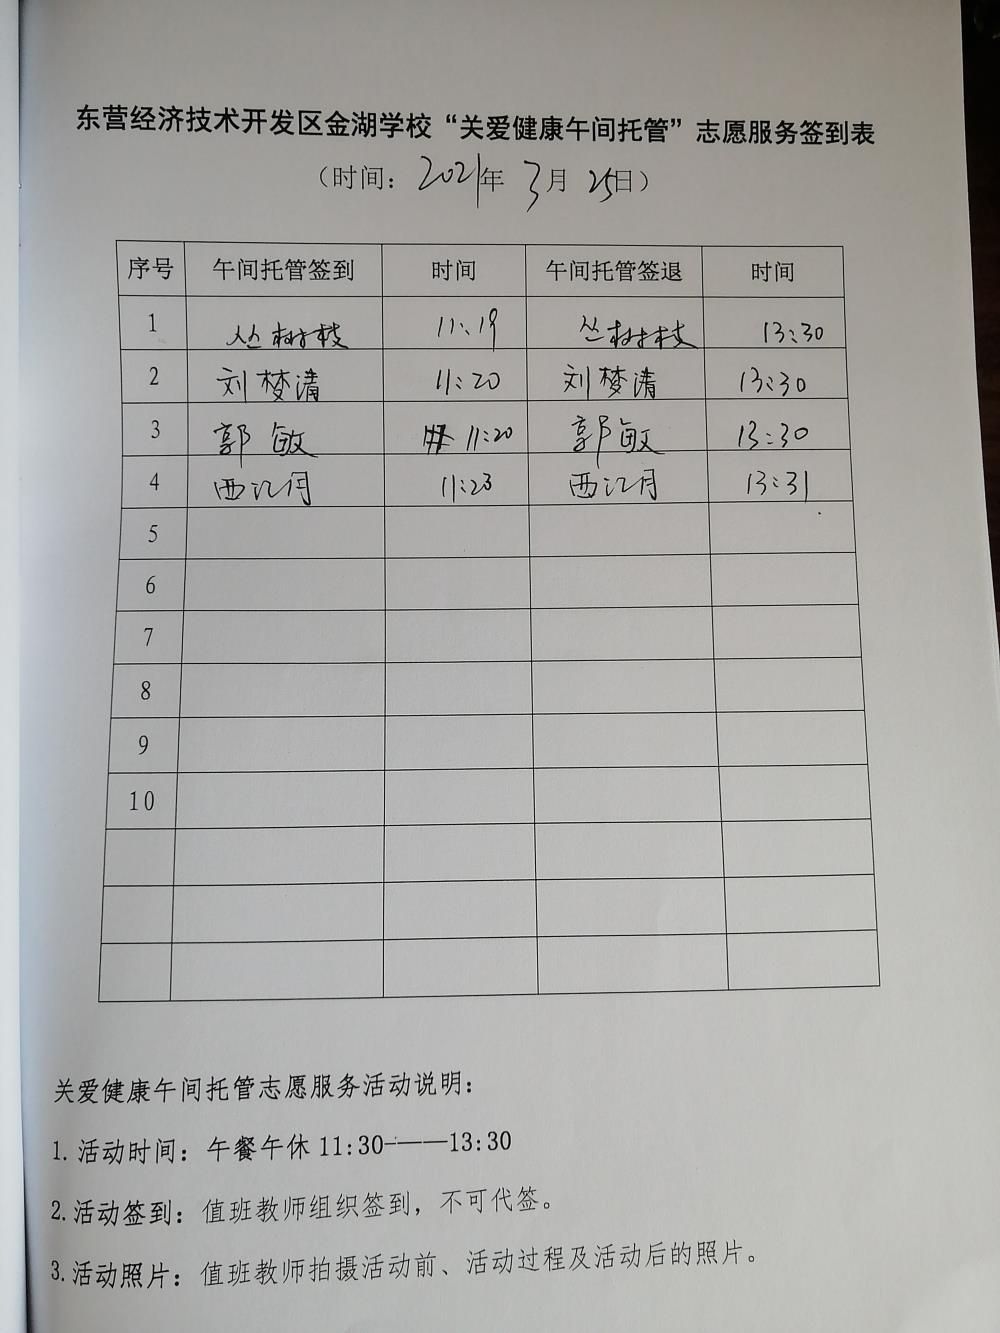 东营经济技术开发区金湖学校“关爱健康午间托管”志愿服务签到表
（时间：2021年 3月 25日）
序号 午间托管签到 时间 午间托管签退 时间
1 丛树枝 11:19 丛树枝 13:30
2 刘梦清 11:20 刘梦清 13:30
3 郭敏 11:20 郭敏 13:30
4 西江月 11:23 西江月 13:31
5
6
7
8
9
10
关爱健康午间托管志愿服务活动说明：
1.活动时间：午餐午休 11:30———13:30
2.活动签到：值班教师组织签到，不可代签。
3.活动照片：值班教师拍摄活动前、活动过程及活动后的照片。